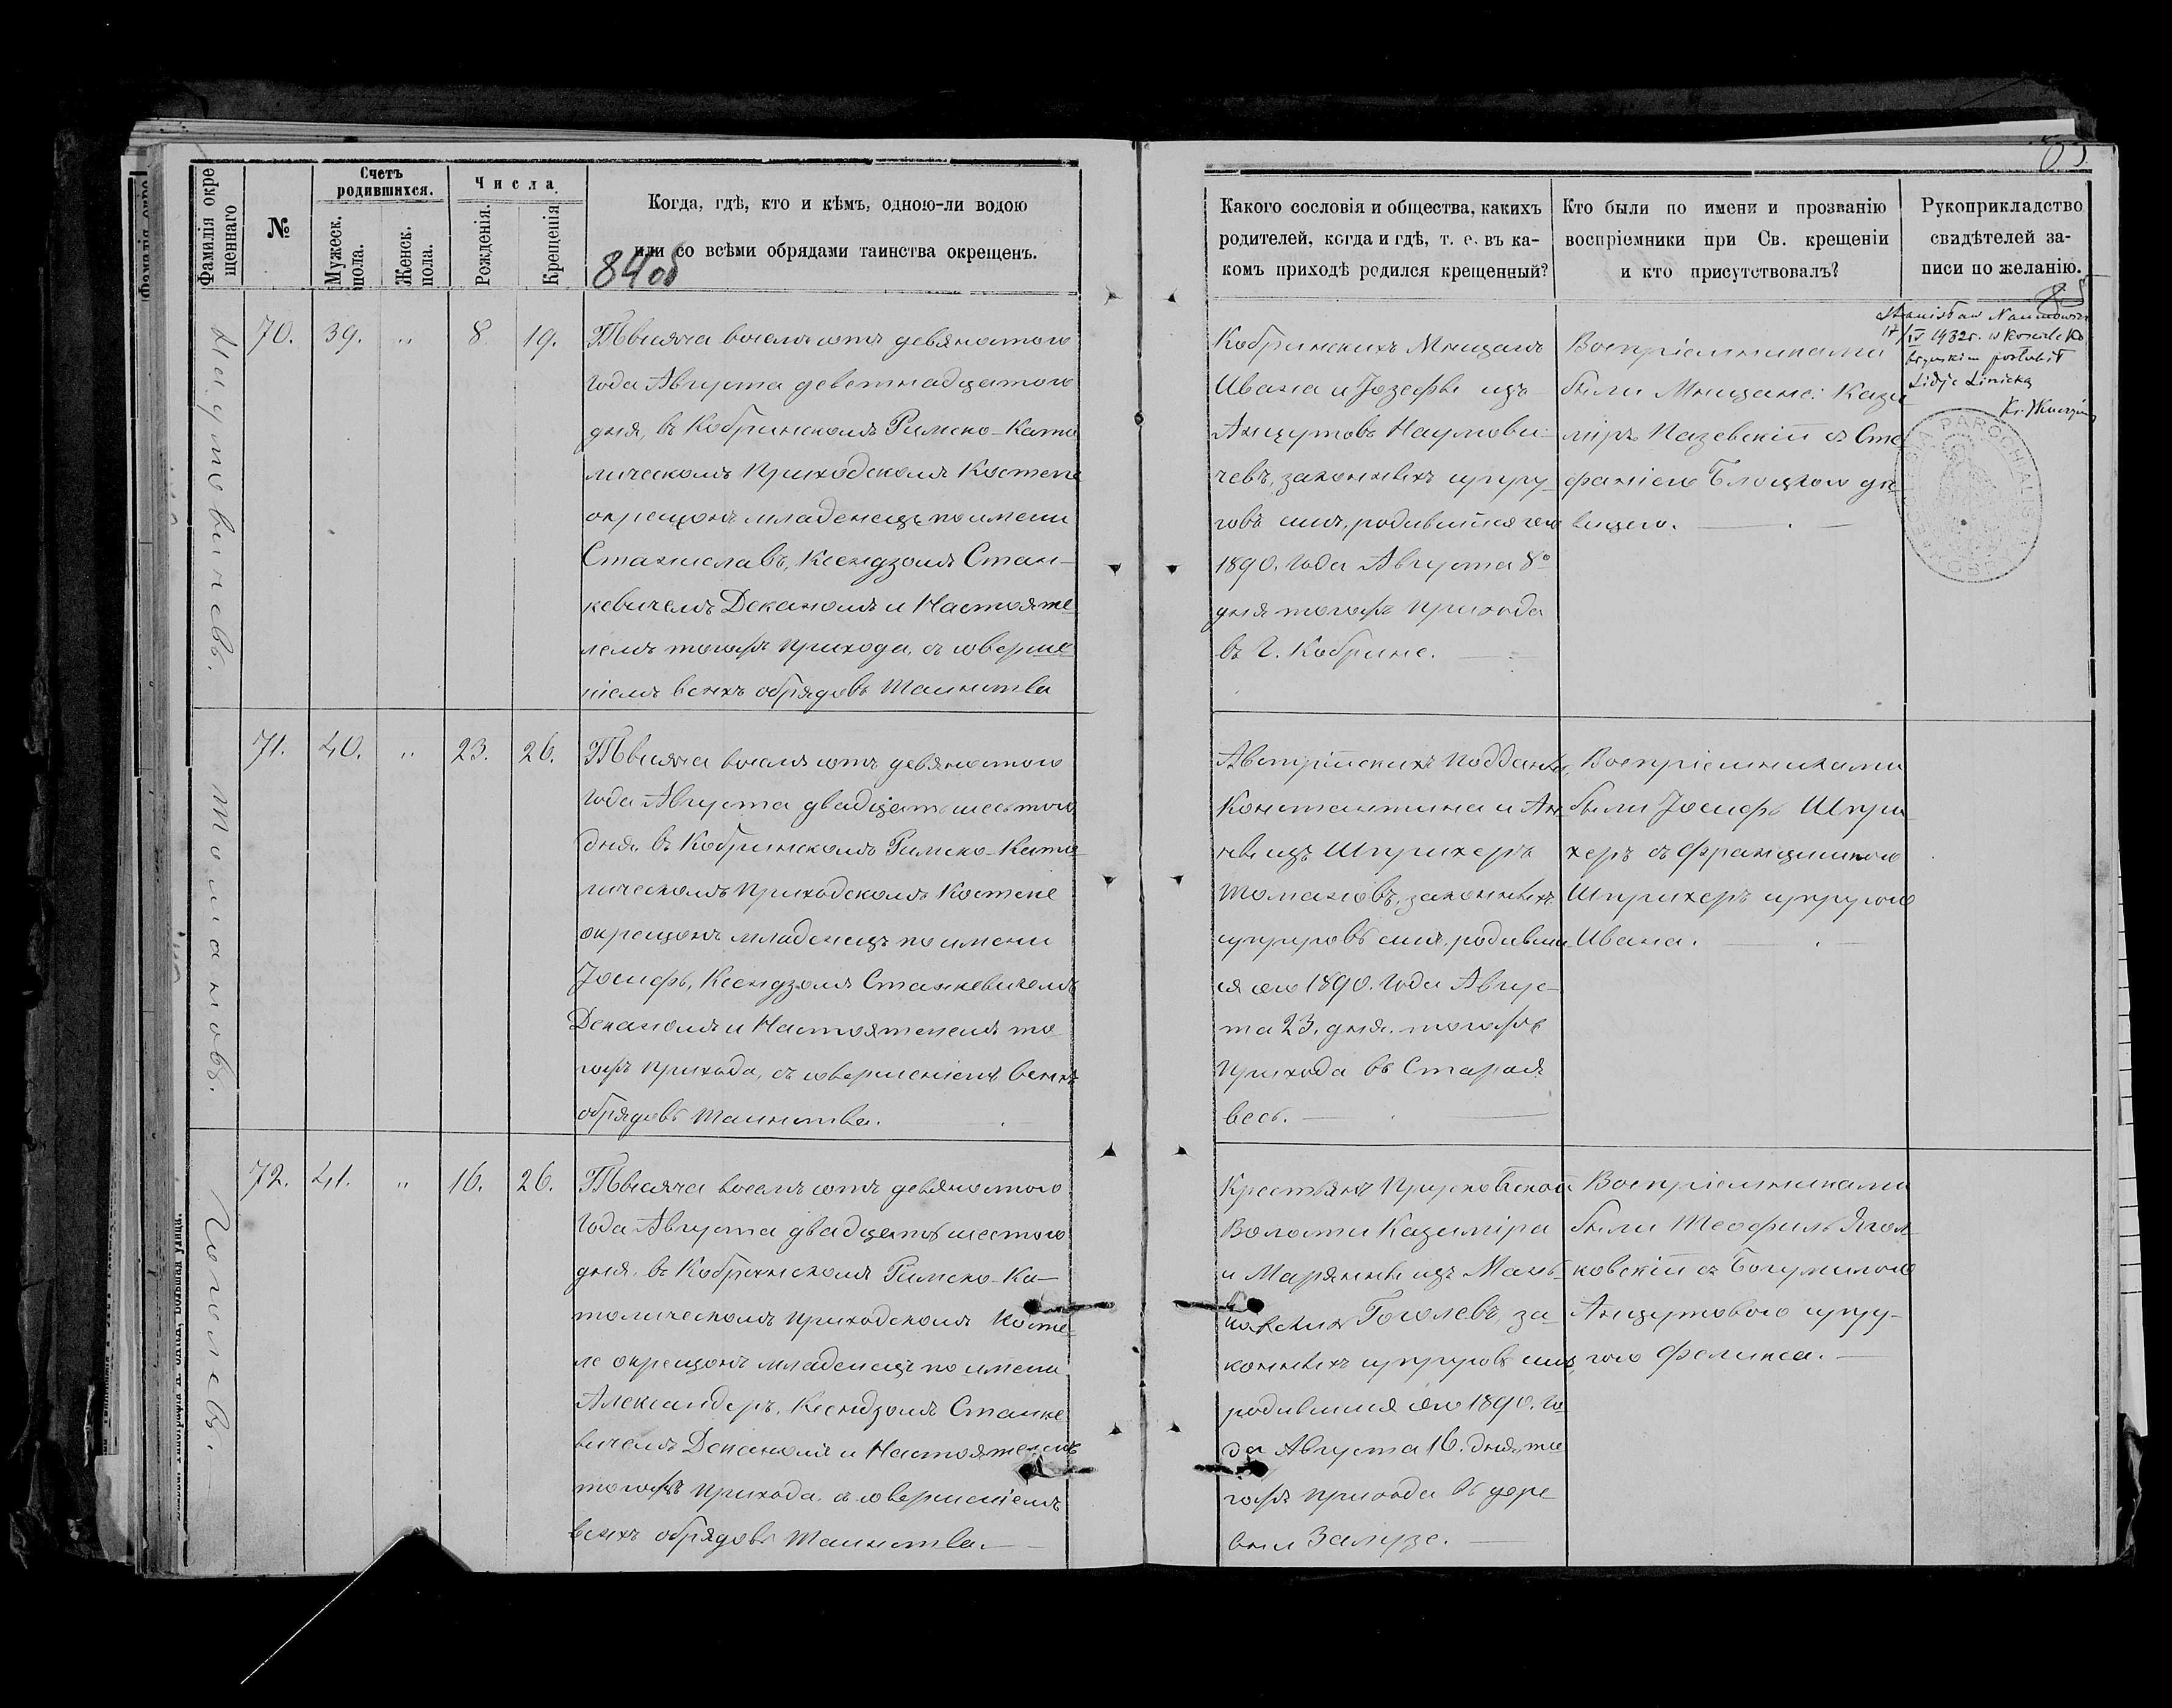 Фамилія окре
щеннаго
№
Счетъ
родившихся.
Мужеск.
пола.
Женск.
пола.
Числа
Рожденія.
Крещенія
Когда, гдѣ, кто и кѣмъ, одною-ли водою
или со всѣми обрядами таинства окрещенъ.
84об
Наумовичевъ.
70.
39.
"
8
19.
Тысяча восемьсотъ девяностого
года Августа деветнадцатого
дня, въ Кобринскомъ Римско-Като
лическомъ Приходскомъ Костеле
окрещонъ младенецъ по имени
Станиславъ, Ксендзомъ Стан-
кевичемъ Деканомъ и Настояте-
лемъ тогожъ Прихода, съ соверше-
ніемъ всѣхъ обрядовъ Таинства
Томановъ.
71.
40.
"
23.
26.
Тысяча восемьсотъ девяностого
года Августа двадцать шестого
дня, въ Кобринскомъ Римско-Като-
лическомъ Приходскомъ Костеле
окрещонъ младенецъ по имени
Іосифъ, Ксендзомъ Станкевичемъ
Деканомъ и Настоятелемъ то-
гожъ Прихода, съ совершеніемъ всѣхъ
обрядовъ Таинства.
Гоголевъ.
72.
41.
"
16.
26.
Тысяча восемьсотъ девяностого
года Августа двадцать шестого
дня, въ Кобринскомъ Римско-Ка-
толическомъ Приходскомъ Косте-
ле окрещонъ младенецъ по имени
Александеръ, Ксендзомъ Станке
вичемъ Деканомъ и Настоятелемъ
тогожъ Прихода, съ совершеніемъ
всѣхъ обрядовъ Таинства.
Какого сословія и общества, какихъ
родителей, когда и гдѣ, т. е. въ ка-
комъ приходѣ родился крещенный?
Кто были по имени и прозванію
воспріемники при Св. крещеніи
и кто присутствовалъ?
Рукоприкладство
свидѣтелей за-
писи по желанію.
85
Кобринскихъ Мѣщанъ
Ивана и Іозефы изъ
Анцутовъ Наумови-
чевъ, законныхъ супру-
говъ сынъ, родившійся сего
1890. года Августа 8º
дня тогожъ Прихода
въ Г. Кобрине.
Воспріемниками
были Мѣщане: Кази
міръ Пазевскій съ Сте
фаніею Блоцкою дѣ-
вицею.
Stanisław Naumowicz
17/IV 1932r. w Kościele Ko
bryńskim poślubił
Lidję Linicką
PAROCHIALIS
Австрійскихъ Подданы
Константина и Ан-
ны изъ Шприхеръ
Томановъ, законныхъ
супруговъ сынъ, родивши-
ся сего 1890. года Авгус-
та 23. дня. тогожъ
Прихода въ Старая
весь.
Воспріемниками
были Іосифъ Шпри-
херъ съ Францишкою
Шприхеръ супругою
Ивана.
Крестьянъ Прусковской
Волости Казиміра
и Марянны изъ Мань-
ковскихъ Гоголевъ, за-
конныхъ супруговъ сынъ,
родившійся сего 1890. го-
да Августа 16. дня, то-
гожъ Прихода въ дере
вни Залузе.
Воспріемниками
были Теофиль Ягол-
ковскій съ Богумилою
Анцутовою супру-
гою Феликса.